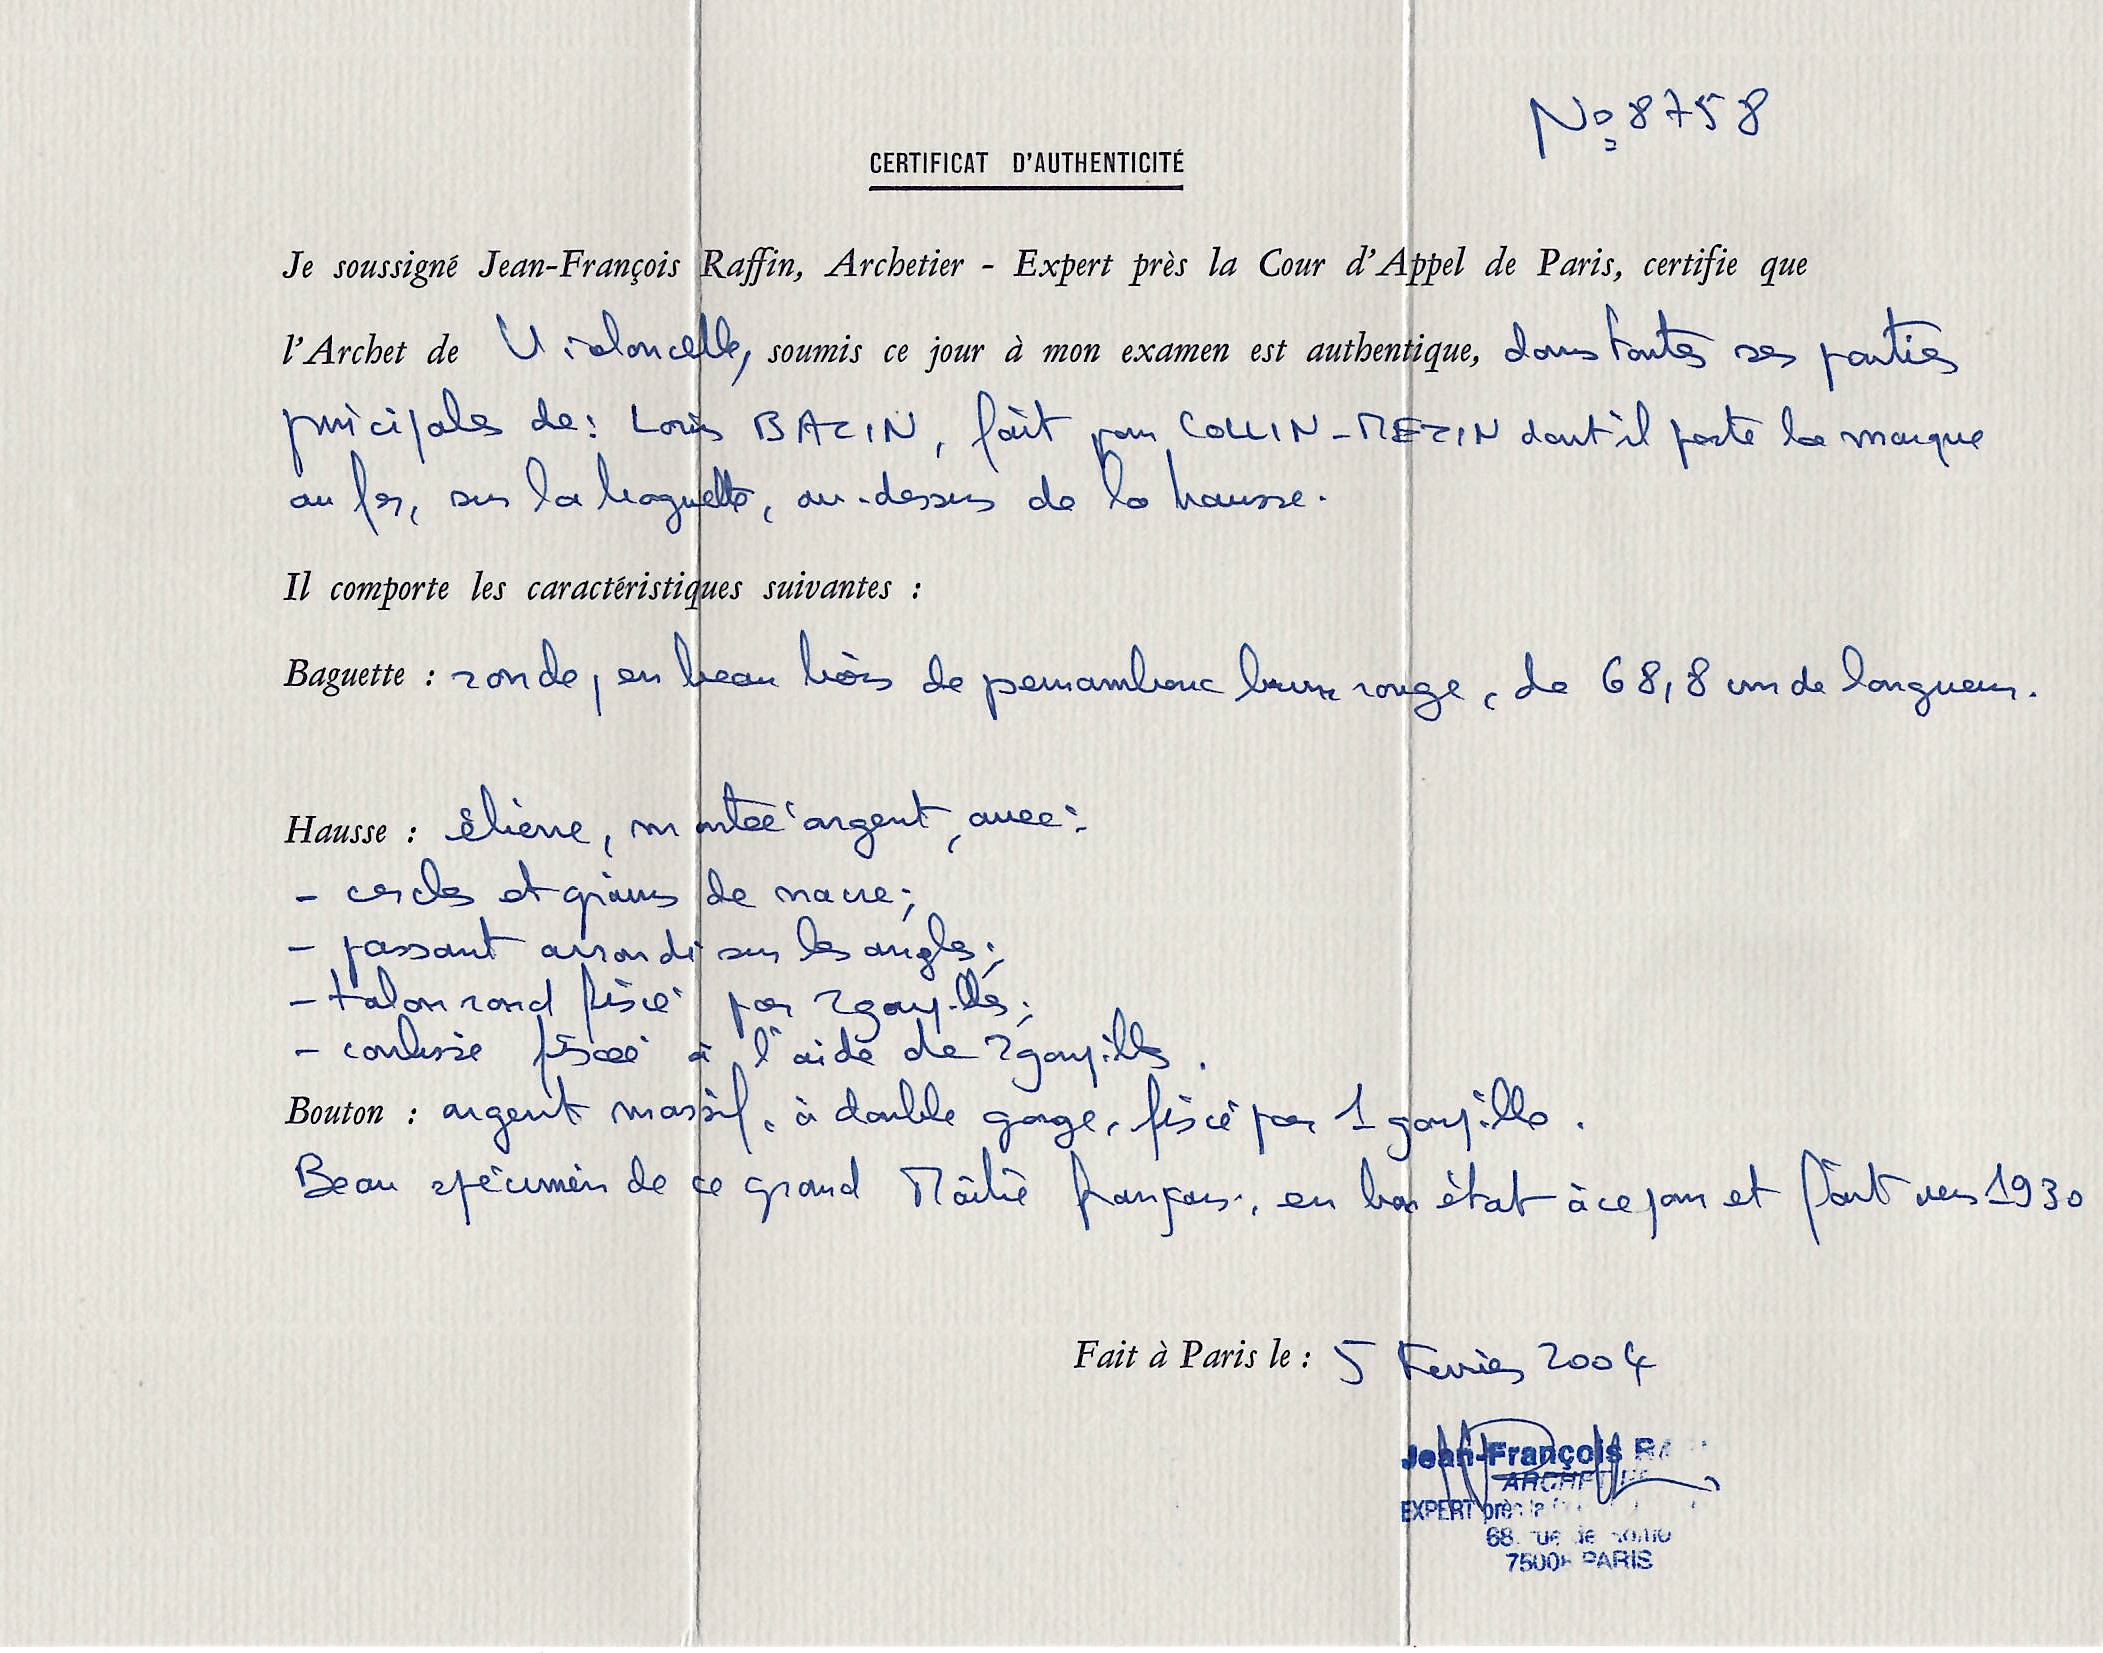 Nº 8758
CERTIFICAT D'AUTHENTICITÉ
Je soussigné Jean-François Raffin, Archetier - Expert près la Cour d'Appel de Paris, certifie que
l'Archet de Violoncelle, soumis ce jour à mon examen est authentique, dans toutes ses parties
principales de : Louis BAZIN, fait pour COLLIN-MEZIN dont il porte la marque
au fer, sur la baguette, au-dessus de la hausse.
Il comporte les caractéristiques suivantes :
Baguette : ronde, en beau bois de pernambouc brun rouge, de 68,8 cm de longueur.
Hausse : ébène, montée argent, avec :
- cercles et grains de nacre ;
- passant arrondi sur les angles ;
- talon rond fixé par 2 goupilles ;
- coulisse fixée à l'aide de 2 goupilles.
Bouton : argent massif, à double gorge, fixé par 1 goupille.
Beau spécimen de ce grand Maître français, en bon état à ce jour et fait vers 1930
Fait à Paris le : 5 Février 2004
Jean-François
EXPERT près la
68, rue de
PARIS